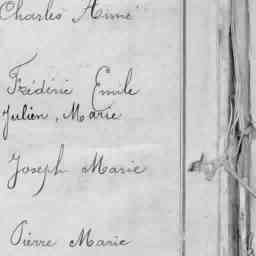 Charles Aimé
Frédéric Emile
Julien, Marie
Joseph Marie
Pierre Marie